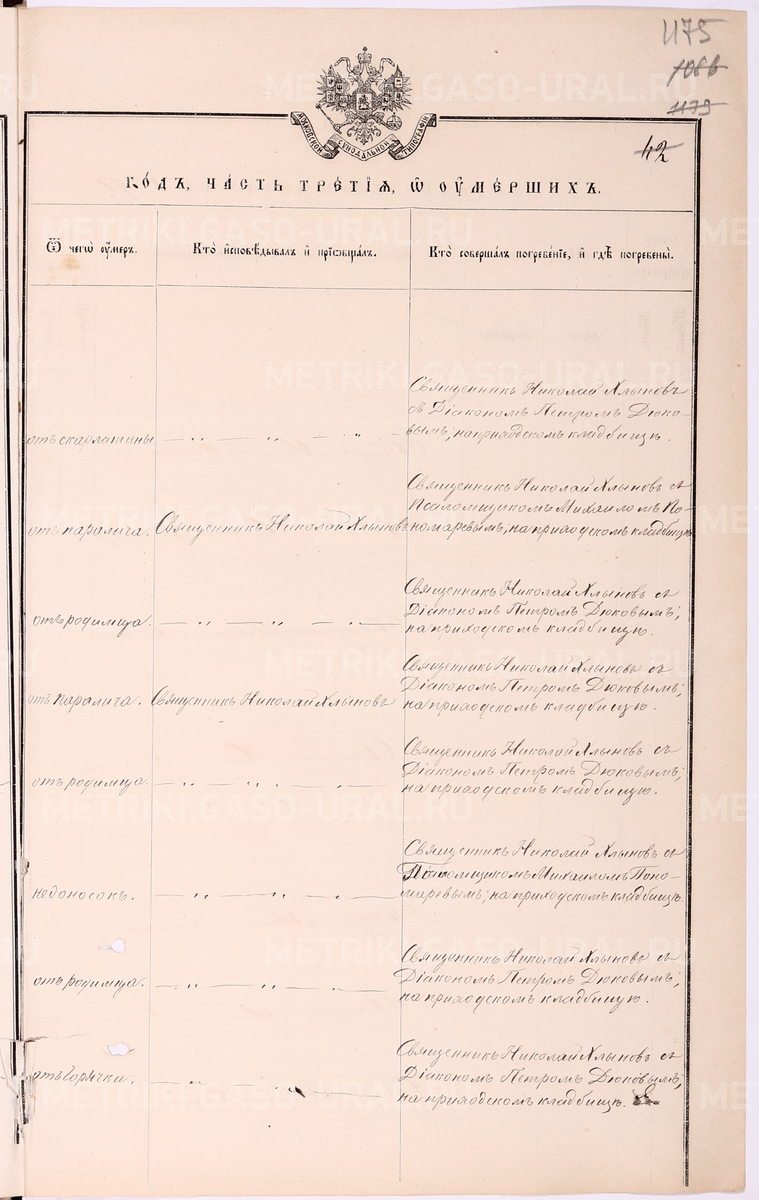 1175
1179
42
МОСКОВСКОЙ СѴНОДАЛЬНОЙ ТИПОГРАФІИ
ГО́ДЪ, ЧА́СТЬ ТРЕ́ТІѦ, Ѡ҆ ОУ҆МЕ́РШИХЪ.
Ѿ чегѡ̀ оу҆́меръ.
Кто̀ и҆сповѣ́дывалъ и҆ прїѡбща́лъ.
Кто̀ соверша́лъ погребе́нїе, и҆ гдѣ̀ погребены̀.
отъ скарлатины
— „ — „ — „ —
Священникъ Николай Хлыновъ
съ Діакономъ Петромъ Дюко-
вымъ; на приходскомъ кладбищѣ.
отъ паралича.
Священникъ Николай Хлыновъ
Священникъ Николай Хлыновъ съ
Псаломщикомъ Михаиломъ По-
номаревымъ; на приходскомъ кладбищѣ
отъ родимца.
— „ — „ — „ —
Священникъ Николай Хлыновъ съ
Діакономъ Петромъ Дюковымъ;
на приходскомъ кладбищѣ.
отъ паралича.
Священникъ Николай Хлыновъ
Священникъ Николай Хлыновъ съ
Діакономъ Петромъ Дюковымъ;
на приходскомъ кладбищѣ.
отъ родимца.
— „ — „ — „ —
Священникъ Николай Хлыновъ съ
Діакономъ Петромъ Дюковымъ;
на приходскомъ кладбищѣ.
недоносокъ.
— „ — „ — „ —
Священникъ Николай Хлыновъ съ
Псаломщикомъ Михаиломъ Поно-
маревымъ; на приходскомъ кладбищѣ.
отъ родимца.
— „ — „ — „ —
Священникъ Николай Хлыновъ съ
Діакономъ Петромъ Дюковымъ;
на приходскомъ кладбищѣ.
отъ горячки.
— „ — „ — „ —
Священникъ Николай Хлыновъ съ
Діакономъ Петромъ Дюковымъ;
на приходскомъ кладбищѣ.
METRIKI.GASO-URAL.RU